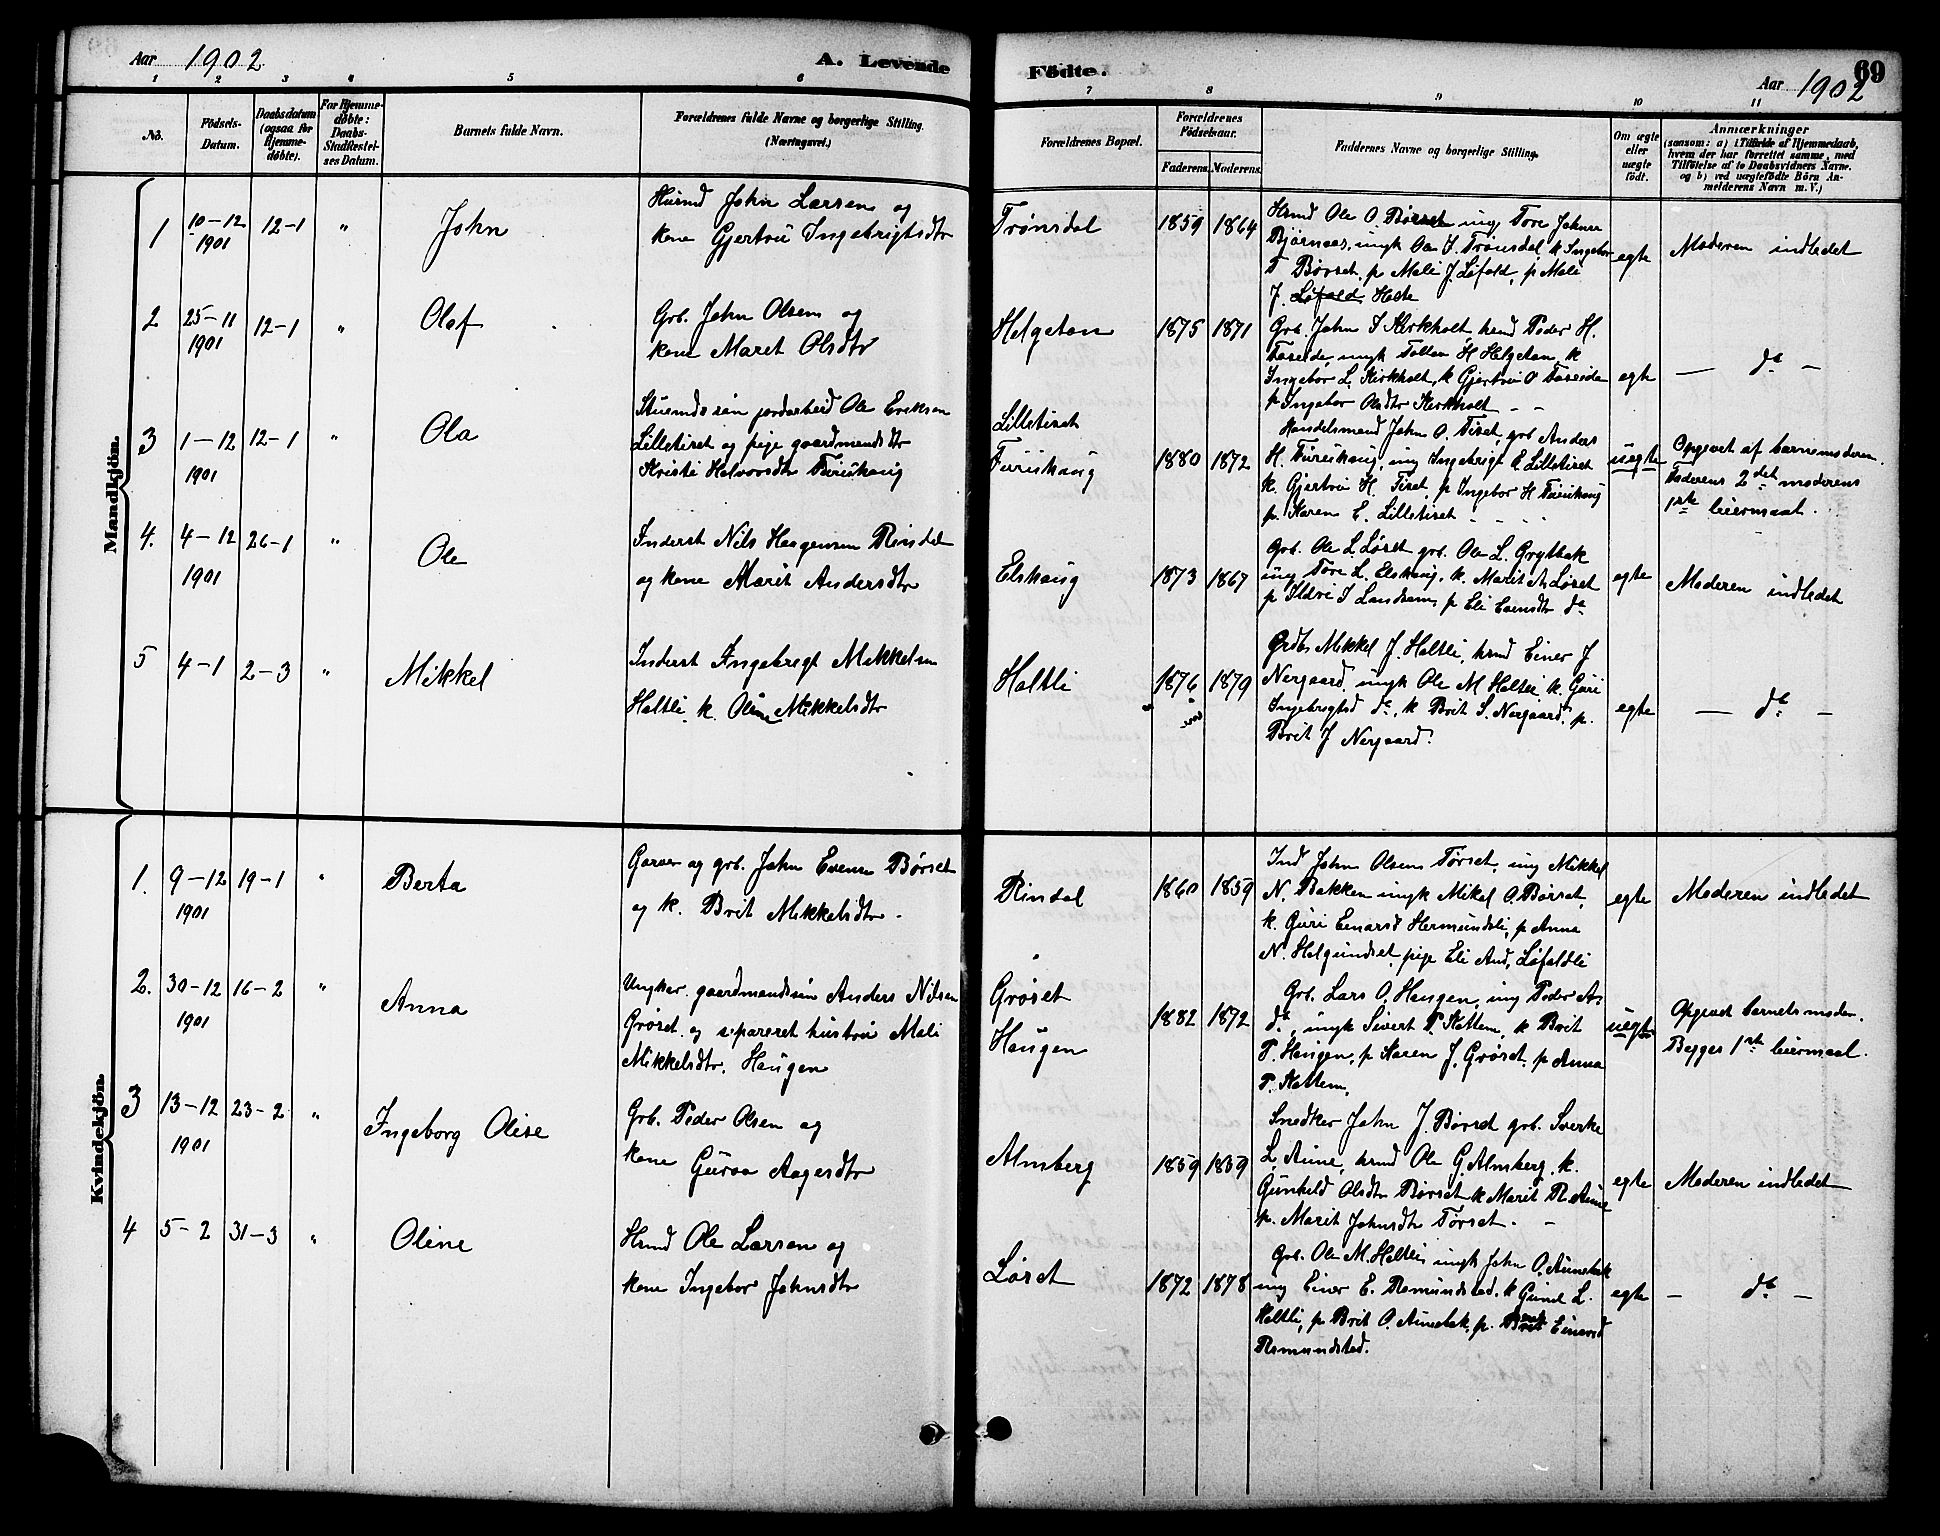 Aar 1902
A. Levende
Fødte.
Aar 1902
69
1 2 3 4 5 6 7 8 9 10 11
No.
Fødsels-
Datum.
Daabsdatum
(ogsaa for
Hjemme-
døbte).
For Hjemme-
døbte:
Daabs-
Stadfæstel-
ses Datum.
Barnets fulde Navn.
Forældrenes fulde Navne og borgerlige Stilling.
(Næringsvei.)
Forældrenes Bopæl.
Forældrenes
Fødselsaar.
Faderens. Moderens.
Faddernes Navne og borgerlige Stilling.
Om ægte
eller
uægte
født.
Anmærkninger
(saasom: a) i Tilfælde af Hjemmedaab,
hvem der har forrettet samme, med
Tilføielse af to Daabsvidners Navne.
og b) ved uægtefødte Børn An-
melderens Navn m. V.)
Mandkjøn.
1 10-12 1901 12-1 " John
Husmd John Larsen og
kone Gjertru Ingebrigtsdtr
Trønsdal 1859 1864
Hsmd Ole O. Børset ung Tore Johnsen
Bjørnaas, ungk Ole J. Trønsdal, k Ingebor
T Børset, p Mali J. Løfald, p Mali
J. Løfald Haste
egte Moderen indledet
2 25-11 1901 12-1 " Olaf
Grb. John Olsen og
kone Maret Olsdtr
Helgetan 1875 1871
Grb. John I Kirkholt, hsmd Peder H.
ungk H Helgetan, k
Ingebor L. Kirkholt, k Gjertru O
p Ingebor Olsdtr Kirkholt - -
egte — do —
3 1-12 1901 12-1 " Ola
Stuemds søn jordarbeid Ole Eriksen
Lilletiset og pige gaardmandsdtr
Kristi Halvorsdtr Furuhaug
Lilletiset
Furuhaug 1880 1872
Handelsmand John O. Tiset, grb Anders
H. Furuhaug, ung Ingebrigt E Lilletiset
k. Gjertru H. Tiset, p Ingebor H Furuhaug
p. Karen E. Lilletiset - - - -
uegte Opgivet af barnemoderen.
Faderens 2det moderens
1ste leiermaal.
4. 4-12 1901 26-1 " Ole
Inderst Nils Haagensen Rindal
og kone Marit Andersdtr
Elshaug 1873 1867
Grb. Ole L Løset grb. Ole L. Grytbak
ung Tore L. Elshaug, k. Marit A Løset
p Ildri I Landsem, p Eli Evensdtr do
egte Moderen indledet
5 4-1 2-3 " Mikkel
Inderst Ingebrigt Mikkelsen
Holtli k. Oline Mikkelsdtr
Holtli 1876 1879
Grdbr Mikkel J. Holtli, hsmd Einer J
Nergaard, ungk Ole M Holtli k. Guri
Ingebrigtsd do, k Brit S. Nergaard, p.
Brit J Nergaard.
egte — do —
Kvindekjøn.
1. 9-12 1901 19-1 " Berta
Garver og grb. John Evensen Børset
og k. Brit Mikkelsdtr -
Rindal 1860 1859
Ind John Olsen Tørset, ung Mikkel
N. Bakken ungk Mikal O. Børset,
k. Guri Einarsd Hermundsli, p Anna
N. Helgundset, pige Eli And. Løfaldli
egte Moderen indledet
2. 30-12 1901 16-2 " Anna
Ungkar. gaardmandssøn Anders Nilsen
Grøset og separeret hustru Mali
Mikkelsdtr. Haugen
Grøset
Haugen 1882 1872
Grb. Lars O. Haugen, ung Peder As
do, ungk Sivert P. Kattem, k Brit
T. Haugen, p Karen J. Grøset, p Anna
P. Kattem.
uegte Opgivet barnets moder.
Begges 1ste leiermaal.
3 13-12 1901 23-2 " Ingeborg Olise
Grb. Peder Olsen og
kone Guroa Aagesdtr
Almberg 1859 1859
Snedker John J. Børset grb. Sverke
L. Aune, hsmd Ole G. Almberg, k.
Gunhild Olsdtr Børset k Marit R Aune
p. Marit Johnsdtr Tørset. -
egte Moderen indledet
4 5-2 31-3 " Oline
Hsmd Ole Larsen og
kone Ingebor Johnsdtr
Løset 1872 1878
Grb. Ole M. Holtli ungk John O. Aunebak
ung Einer E. Romundstad, k Gunel L.
Holtli, p Brit O. Aunebak, p. Einersd
Romundstad.
egte — do —